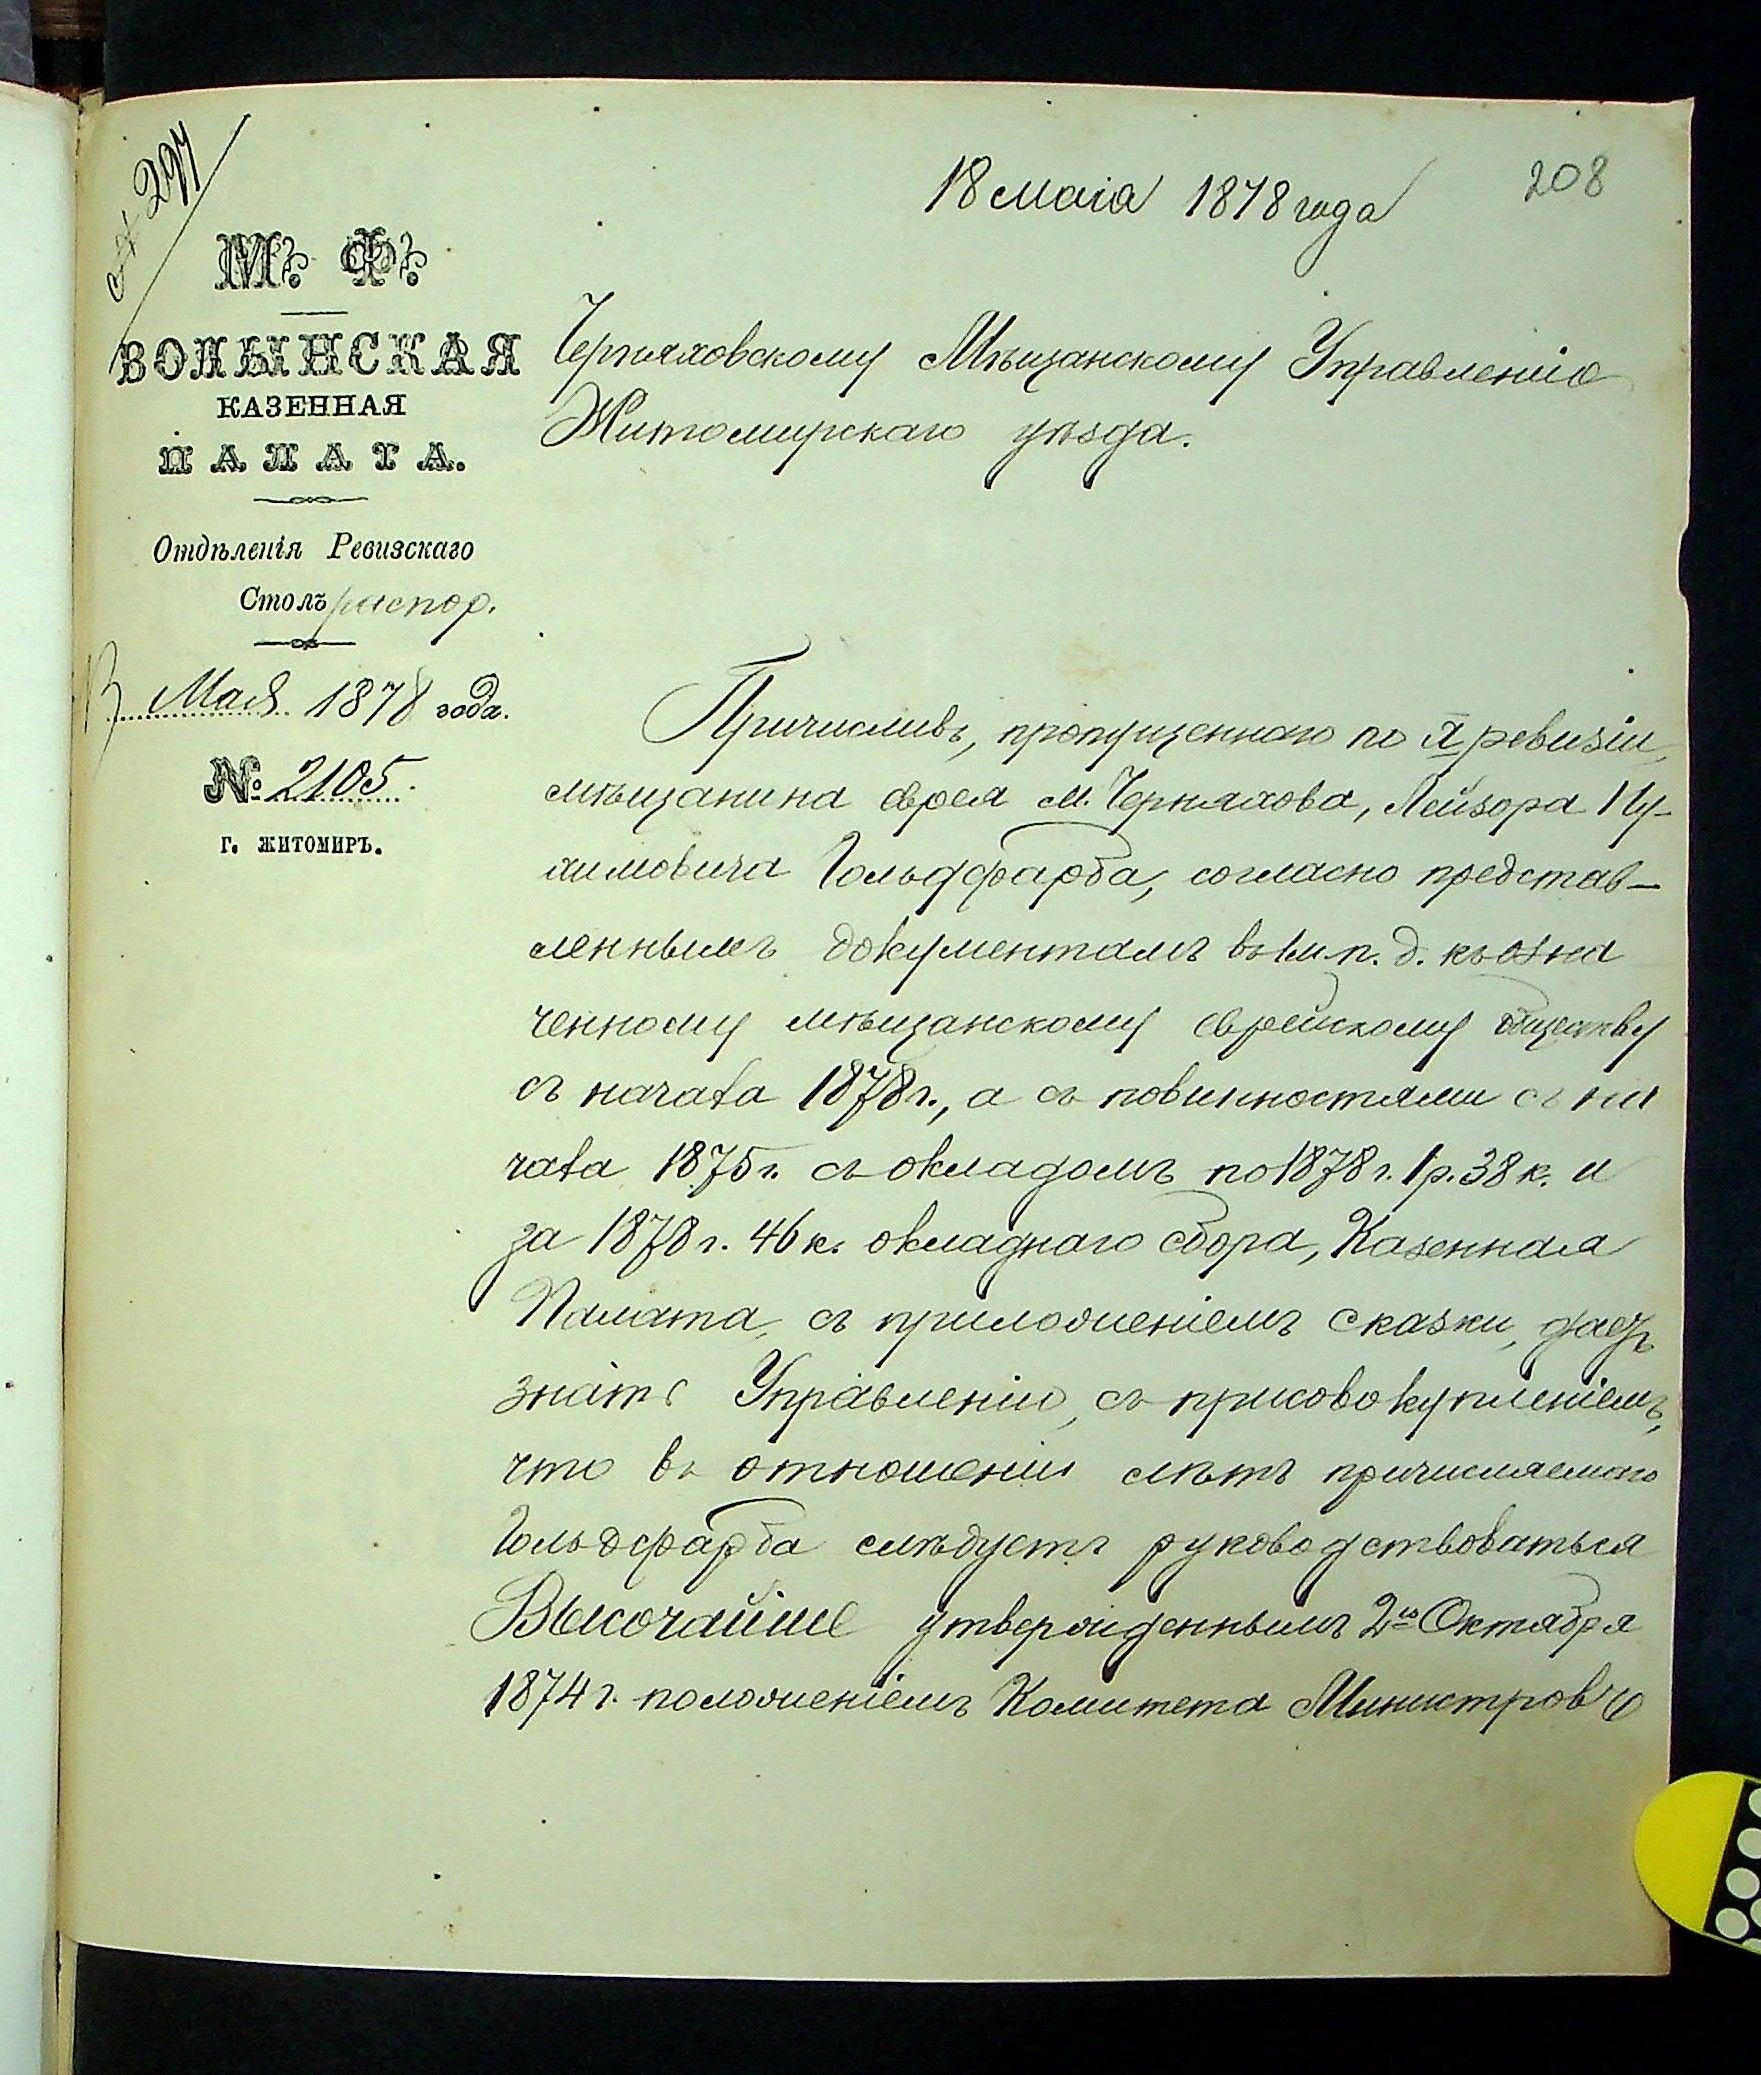 № 297
18 маія 1878 года
208
М. Ф.
ВОЛЫНСКАЯ
КАЗЕННАЯ
ПАЛАТА.
Отдѣленія Ревизскаго
Столъ распор.
13 Мая 1878 года.
№ 2105.
Г. ЖИТОМИРЪ.
Черняховскому Мѣщанскому Управленію
Житомирскаго уѣзда.
Причисливъ, пропущеннаго по X ревизіи,
мѣщанина еврея м. Черняхова, Лейзора Ну-
химовича Гольдфарба, согласно представ-
леннымъ документамъ въ 1 м. п. д. къ озна
ченному мѣщанскому еврейскому обществу
съ начала 1878 г., а съ повинностями съ на
чала 1875 г. съ окладомъ по 1878 г. 1 р. 38 к. и
за 1878 г. 46 к. окладнаго сбора, Казенная
Палата, съ приложеніемъ сказки, даетъ
знать Управленію, съ присовокупленіемъ,
что въ отношеніи лѣтъ причисляемаго
Гольдфарба слѣдуетъ руководствоваться
Высочайше утвержденнымъ 2го Октября
1874 г. положеніемъ Комитета Министровъ о